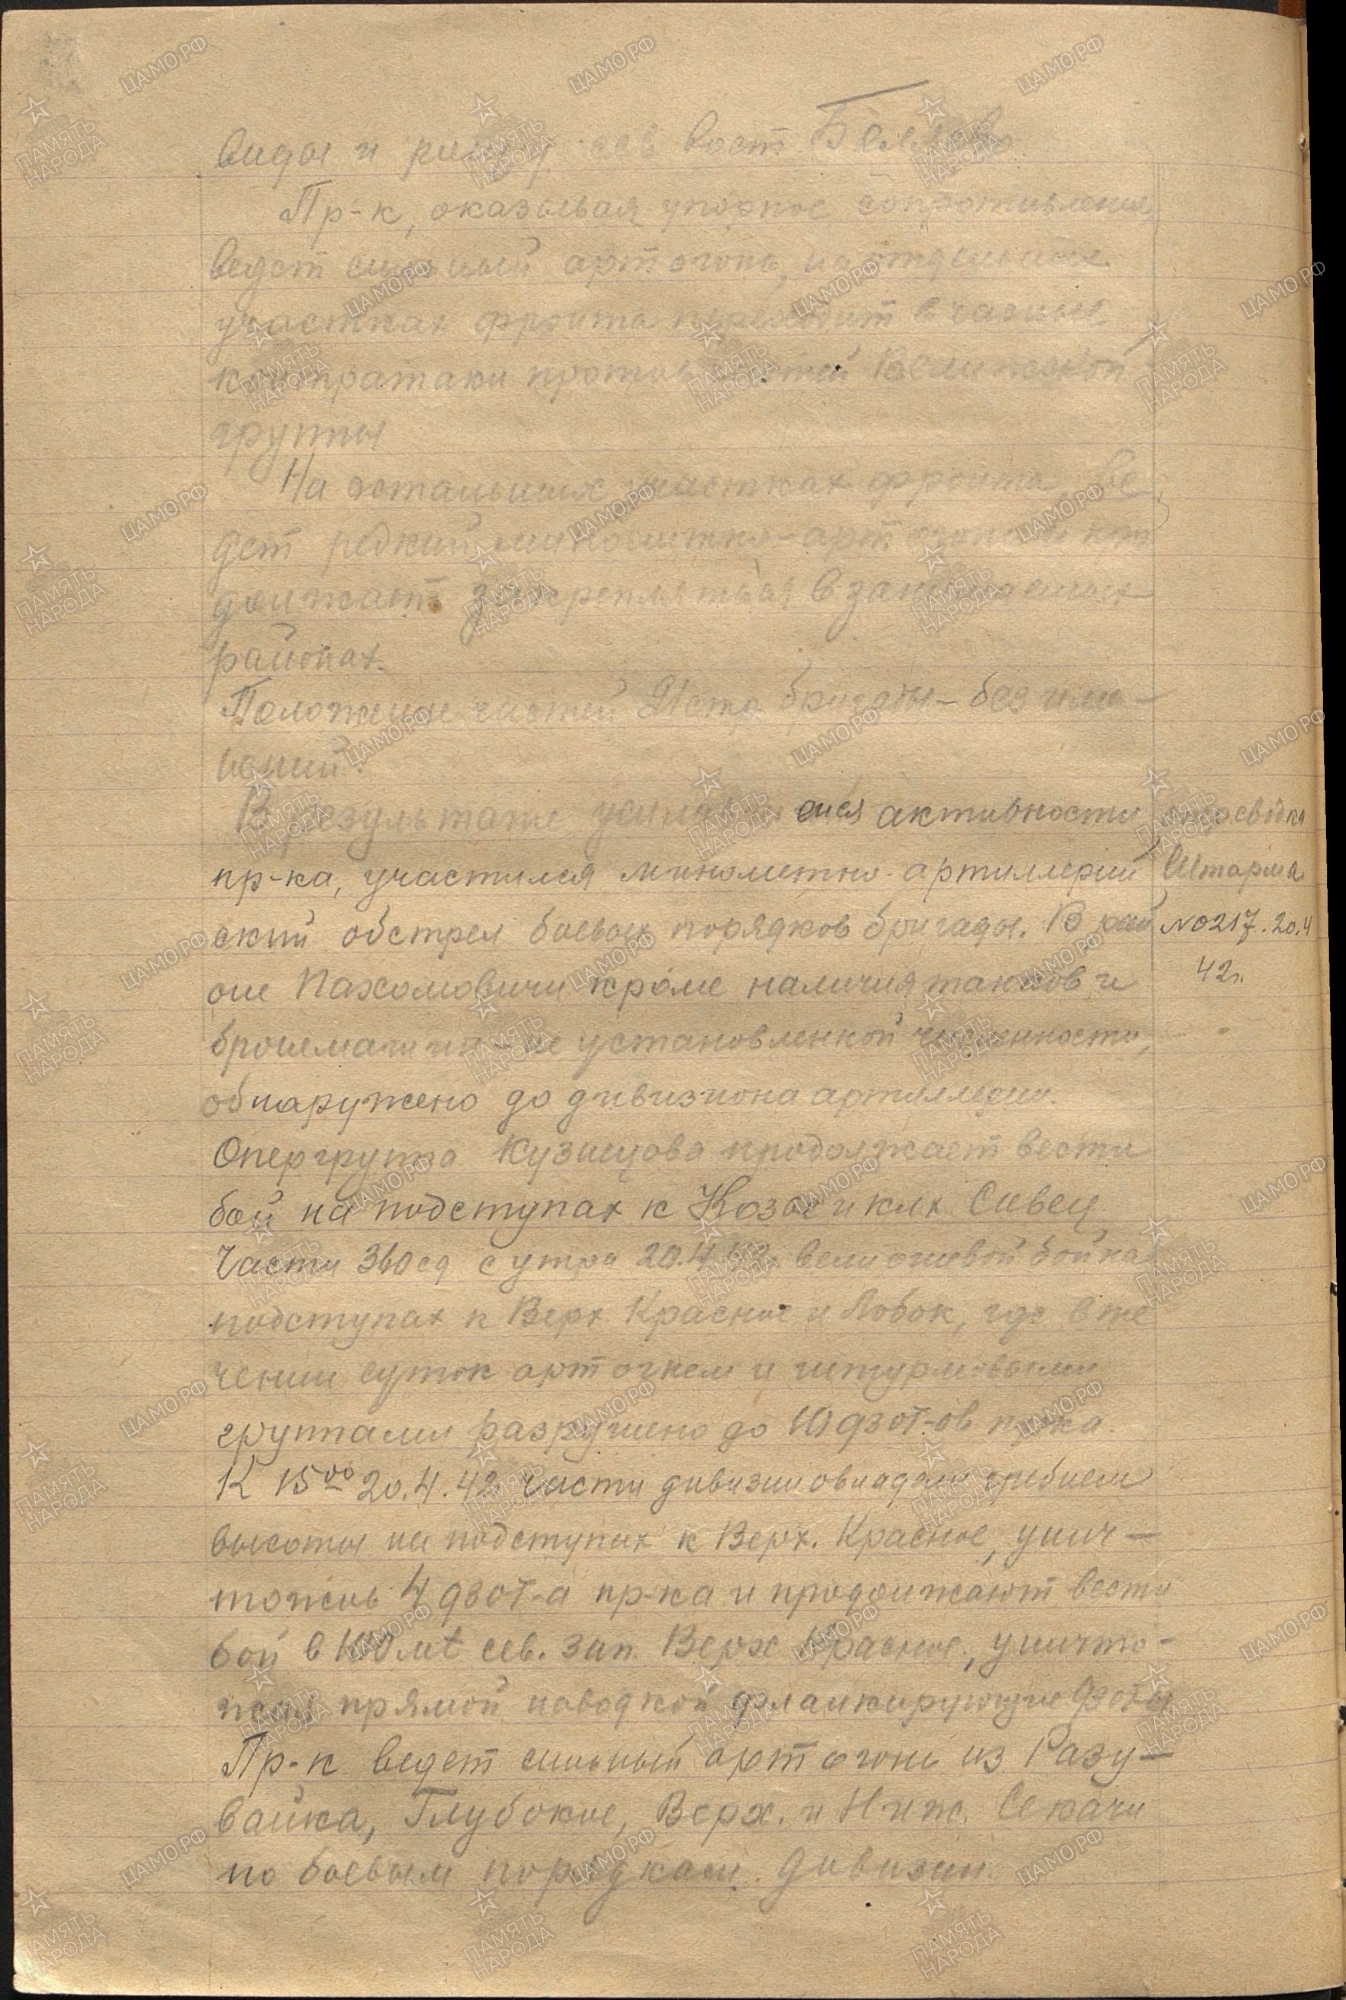 виды и рощу сев вост Беляево
Пр-к, оказывая упорное сопротивление,
ведет сильный арт огонь, на отдельных
участках фронта переходит в частые
контратаки против частей Велижской
группы
На остальных участках фронта, ве
дет редкий минометно-арт огонь и про
должает закрепляться в занимаемых
районах.
Положение частей 21 стр бригады – без изме–
нений.
В результате усилившейся активности
пр-ка, участился минометно-артиллерий
ский обстрел боевых порядков бригады. В рай
оне Пахомовичи кроме наличия танков и
бронемашин – не установленной численности,
обнаружено до дивизиона артиллерии.
Опергруппа Кузнецова продолжает вести
бой на подступах к Козье и клх Сивец
Части 360сд с утра 20.4.42г. вели огневой бой на
подступах к Верх Красное и Лобок, где в те
чении суток арт огнем и штурмовыми
группами разрушено до 10 дзот-ов пр-ка.
К 15⁰⁰ 20.4.42 части дивизии овладели гребнем
высоты на подступах к Верх. Красное, унич–
тожив 4 дзот-а пр-ка и продолжают вести
бой в 100 мt сев. зап. Верх Красное, уничто-
жая прямой наводкой фланкирующие дзоты
Пр-к ведет сильный арт огонь из Разу–
вайка, Глубокое, Верх. и Ниж. Секачи
по боевым порядкам дивизии.
опер сводка
Штарма
№0217. 20.4
42г.